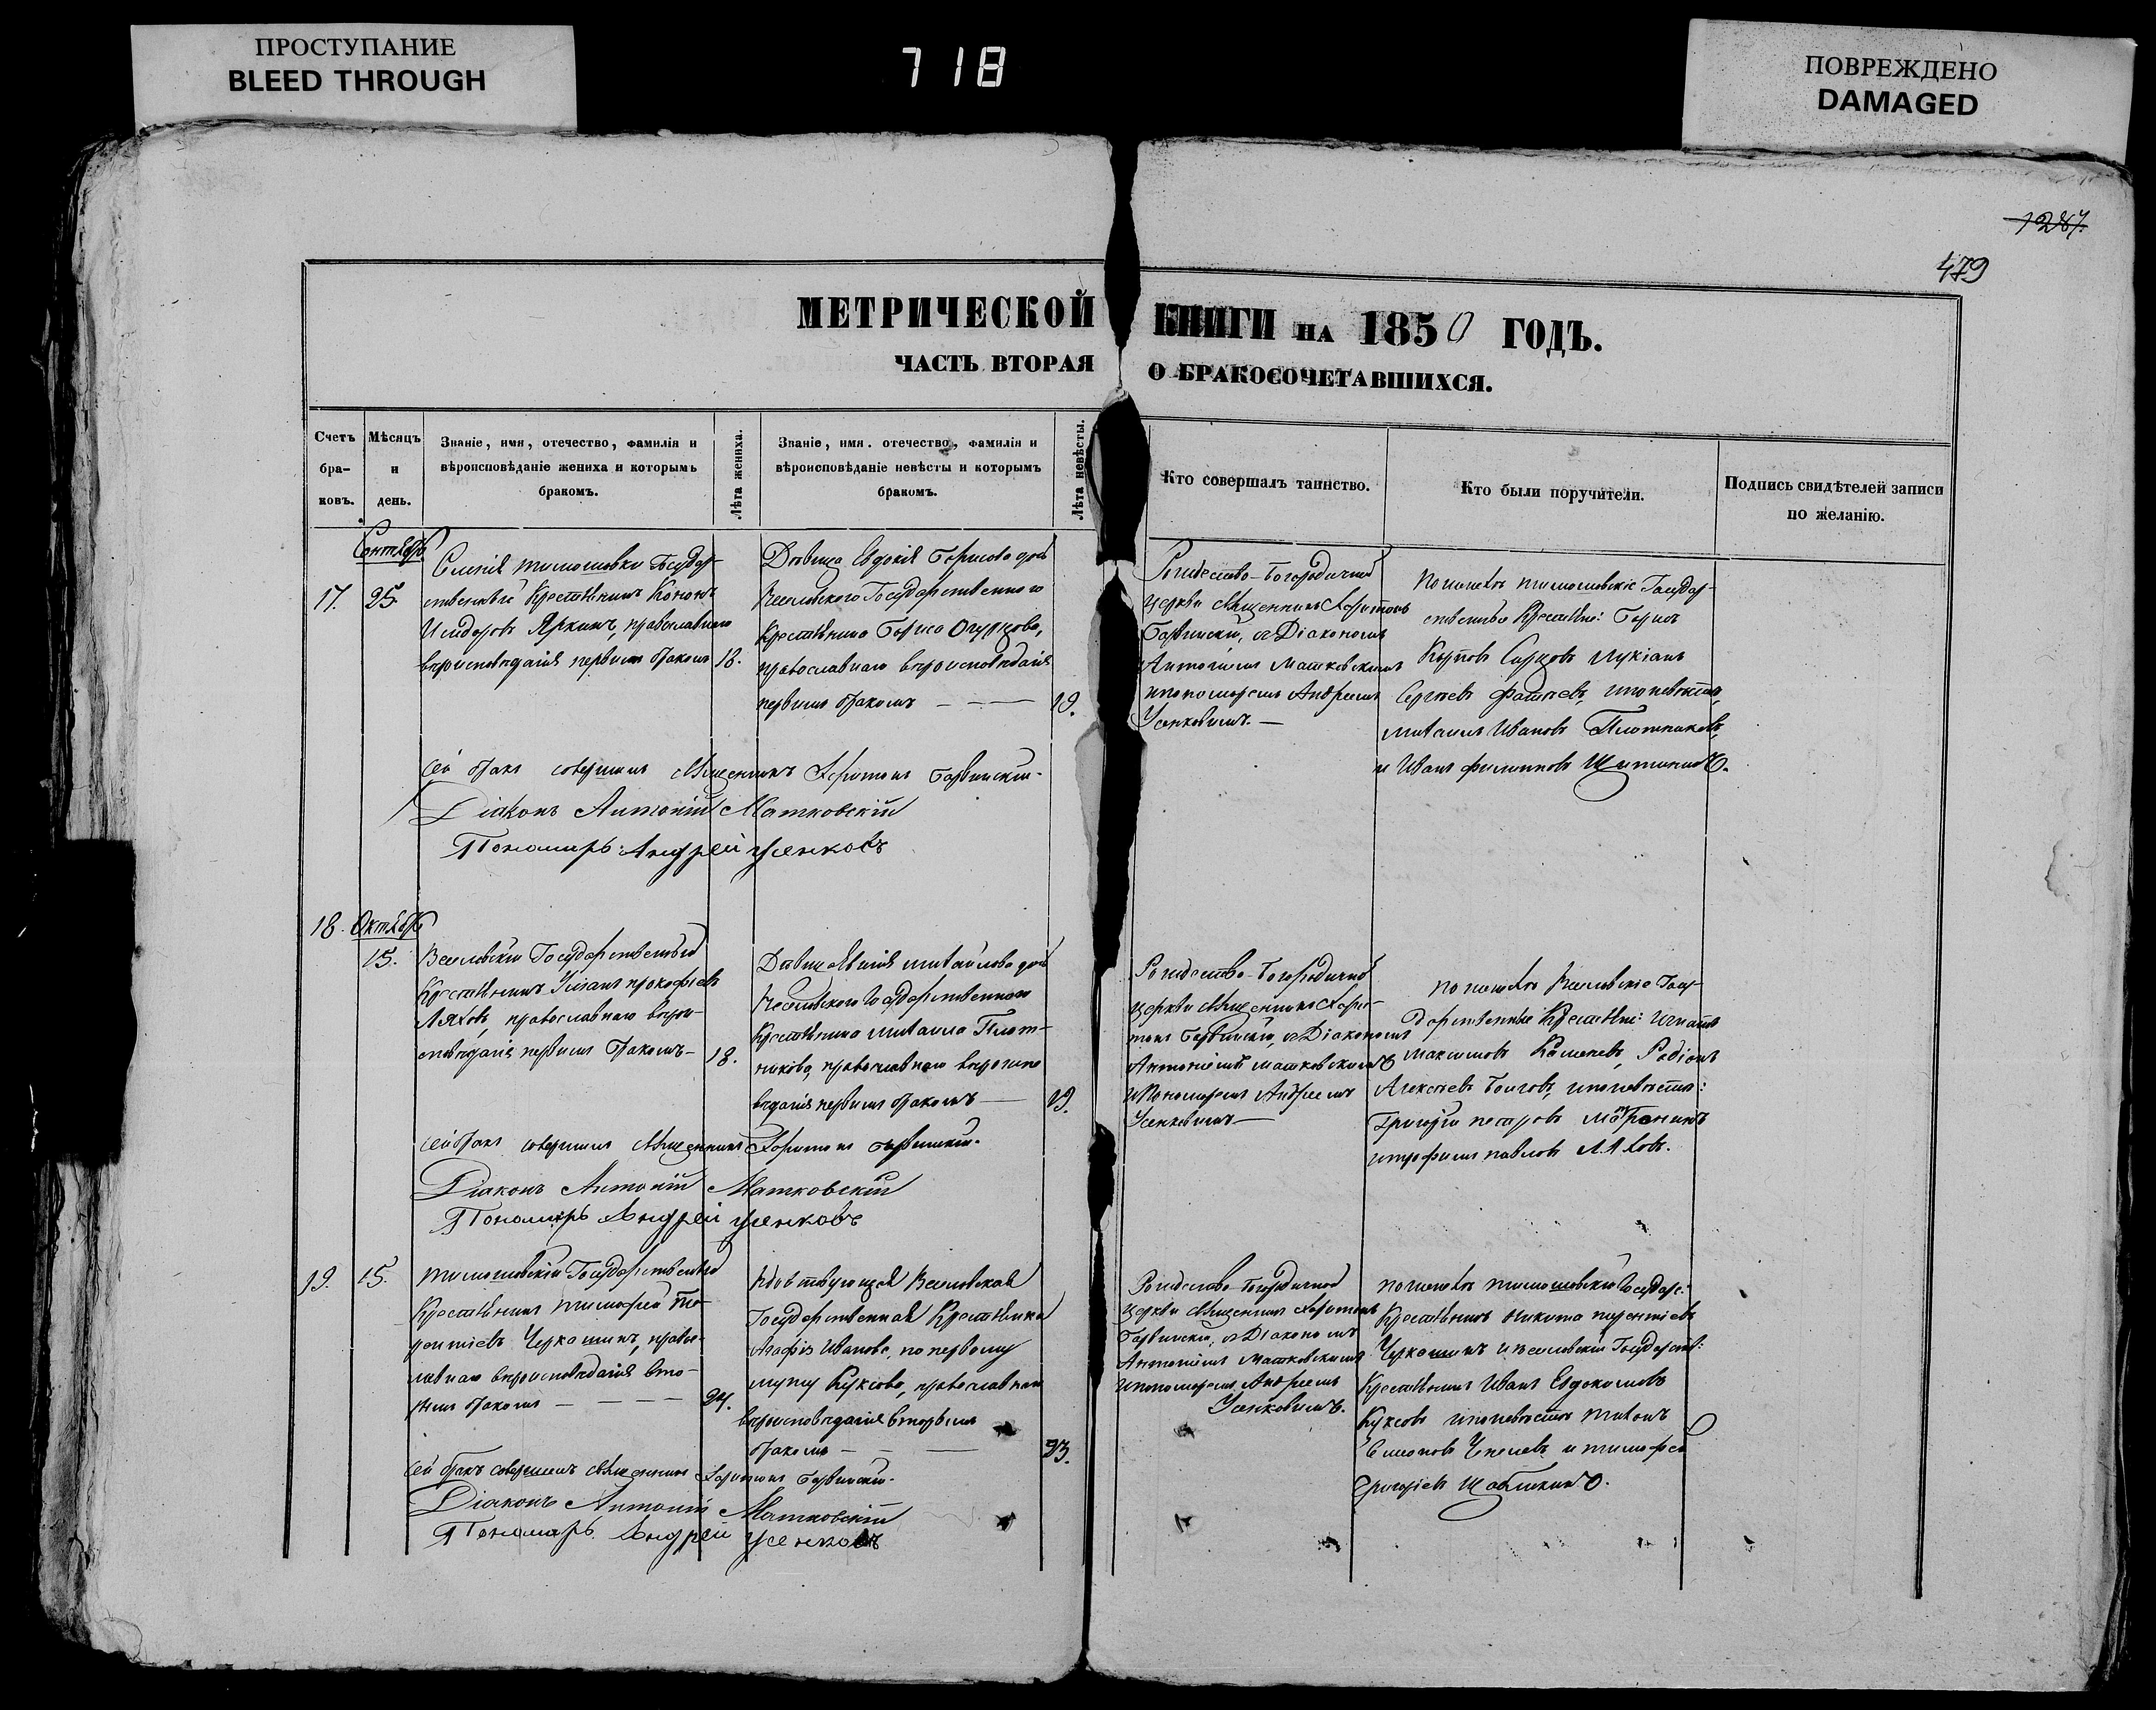 ПРОСТУПАНИЕ
BLEED THROUGH
718
ПОВРЕЖДЕНО
DAMAGED
1287.
479
МЕТРИЧЕСКОЙ КНИГИ НА 1850 ГОДЪ.
ЧАСТЬ ВТОРАЯ О БРАКОСОЧЕТАВШИХСЯ.
Счетъ
бра-
ковъ.
Мѣсяцъ
и
день.
Званіе, имя, отечество, фамилія и
вѣроисповѣданіе жениха и которымъ
бракомъ.
Лѣта жениха.
Званіе, имя. отечество, фамилія и
вѣроисповѣданіе невѣсты и которымъ
бракомъ.
Лѣта невѣсты.
Кто совершалъ таинство.
Кто были поручители.
Подпись свидѣтелей записи
по желанію.
Сентябрь
17.
25.
Селенія Тимошовки Государ-
ственный Крестьянинъ Кононъ
Исидоровъ Яркинъ, православнаго
вѣроисповѣданія первымъ бракомъ
18.
Дѣвица Евдокія Борисова дочь
Веселовского Государственного
Крестьянина Бориса Огурцова,
православнаго вѣроисповѣданія
первымъ бракомъ
19.
Рождество-Богородичной
церкви Священникъ Харитонъ
съ Діакономъ
Антоніемъ Матковскимъ
и пономаремъ Андреемъ
Усенковымъ.
По женихѣ Тимошовскіе Государ-
ственные Крестьяне: Борисъ
Лукіанъ
Сергѣевъ и по невѣстѣ,
Михаилъ Ивановъ Плотниковъ,
и Иванъ Филиповъ
Сей бракъ совершилъ Священникъ Харитонъ
Діаконъ Антоній Матковскій
Пономарь Андрей Усенковъ
18.
Октябрь
15.
Веселовскій Государственный
Крестьянинъ Прокофьевъ
Ляховъ, православнаго вѣрои-
сповѣданія первымъ бракомъ
18.
Дѣвица Михайлова дочь
Веселовского Государственного
Крестьянина Михаила Плот-
никова, православнаго вѣроиспо
вѣданія первымъ бракомъ
19.
Рождество-Богородичной
церкви Священникъ Хари-
тонъ съ Діакономъ
Антоніемъ Матковскимъ
и Пономаремъ Андреемъ
Усенковымъ
По женихѣ Веселовскіе Госу-
дарственные Крестьяне: Игнатъ
Максимовъ Родіонъ
Алексѣевъ и по невѣстѣ:
Григорій
и Трофимъ Павловъ Ляховъ.
Сей бракъ совершилъ Священникъ Харитонъ
Діаконъ Антоній Матковскій
Пономарь Андрей Усенковъ
19.
15.
Тимошовскій Государственный
Крестьянинъ Тимофей Те-
рентіевъ Черкашинъ, правос-
лавнаго вѣроисповѣданія вто-
рымъ бракомъ
24.
Вдовствующая Веселовская
Государственная Крестьянка
Агафія Иванова, по первому
мужу Куксова, православнаго
вѣроисповѣданія вторымъ
бракомъ
23.
Рождество-Богородичной
церкви Священникъ Харитонъ
съ Діакономъ
Антоніемъ Матковскимъ
и пономаремъ Андреемъ
Усенковымъ.
По женихѣ Тимошовскій Государс:
Крестьянинъ Никита Терентіевъ
Черкашинъ и Веселовскій Государств:
Крестьянинъ Иванъ Евдокимовъ
Куксовъ и по невѣстѣ Тихонъ
и Тимофей
Григоріевъ
Сей бракъ совершилъ Священникъ Харитонъ
Діаконъ Антоній Матковскій
Пономарь Андрей Усенковъ